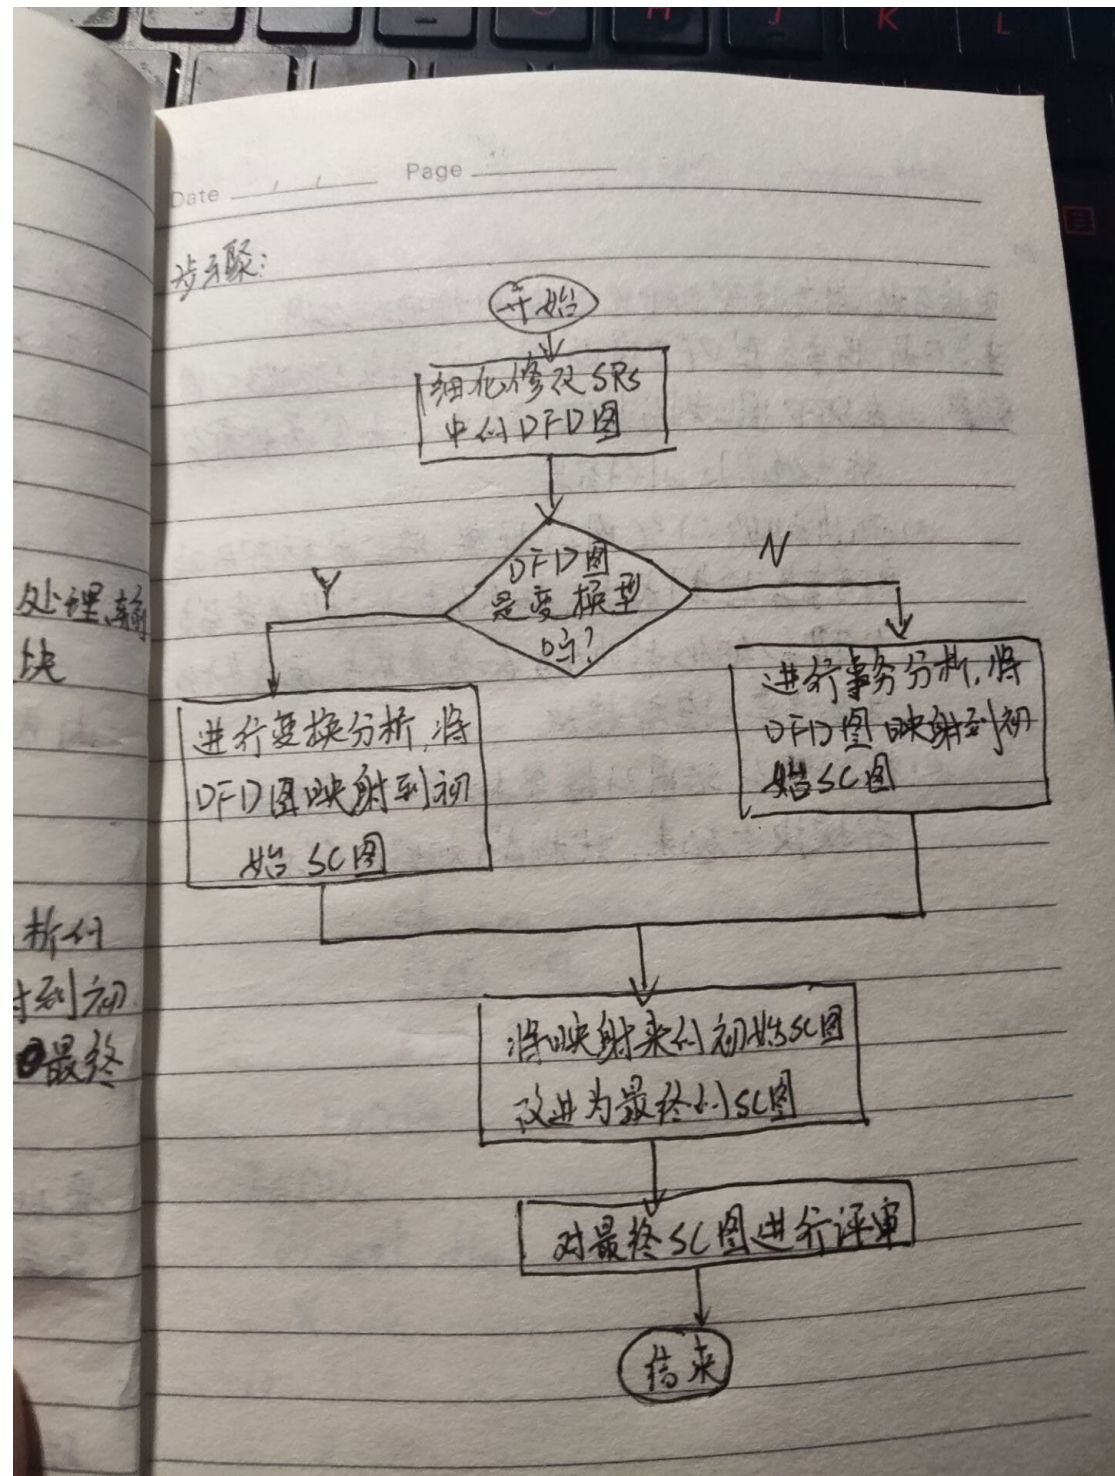 H
J
K
L
Date / / Page
步聚:
开始
细化修改SRS
中的DFD图
DFD图
是变换型
吗?
Y
N
进行变换分析,将
DFD图映射到初
始SC图
进行事务分析,将
DFD图映射到初
始SC图
将映射来的初始SC图
改进为最终的SC图
对最终SC图进行评审
结束
处理、输
块
析的
射到初
最终